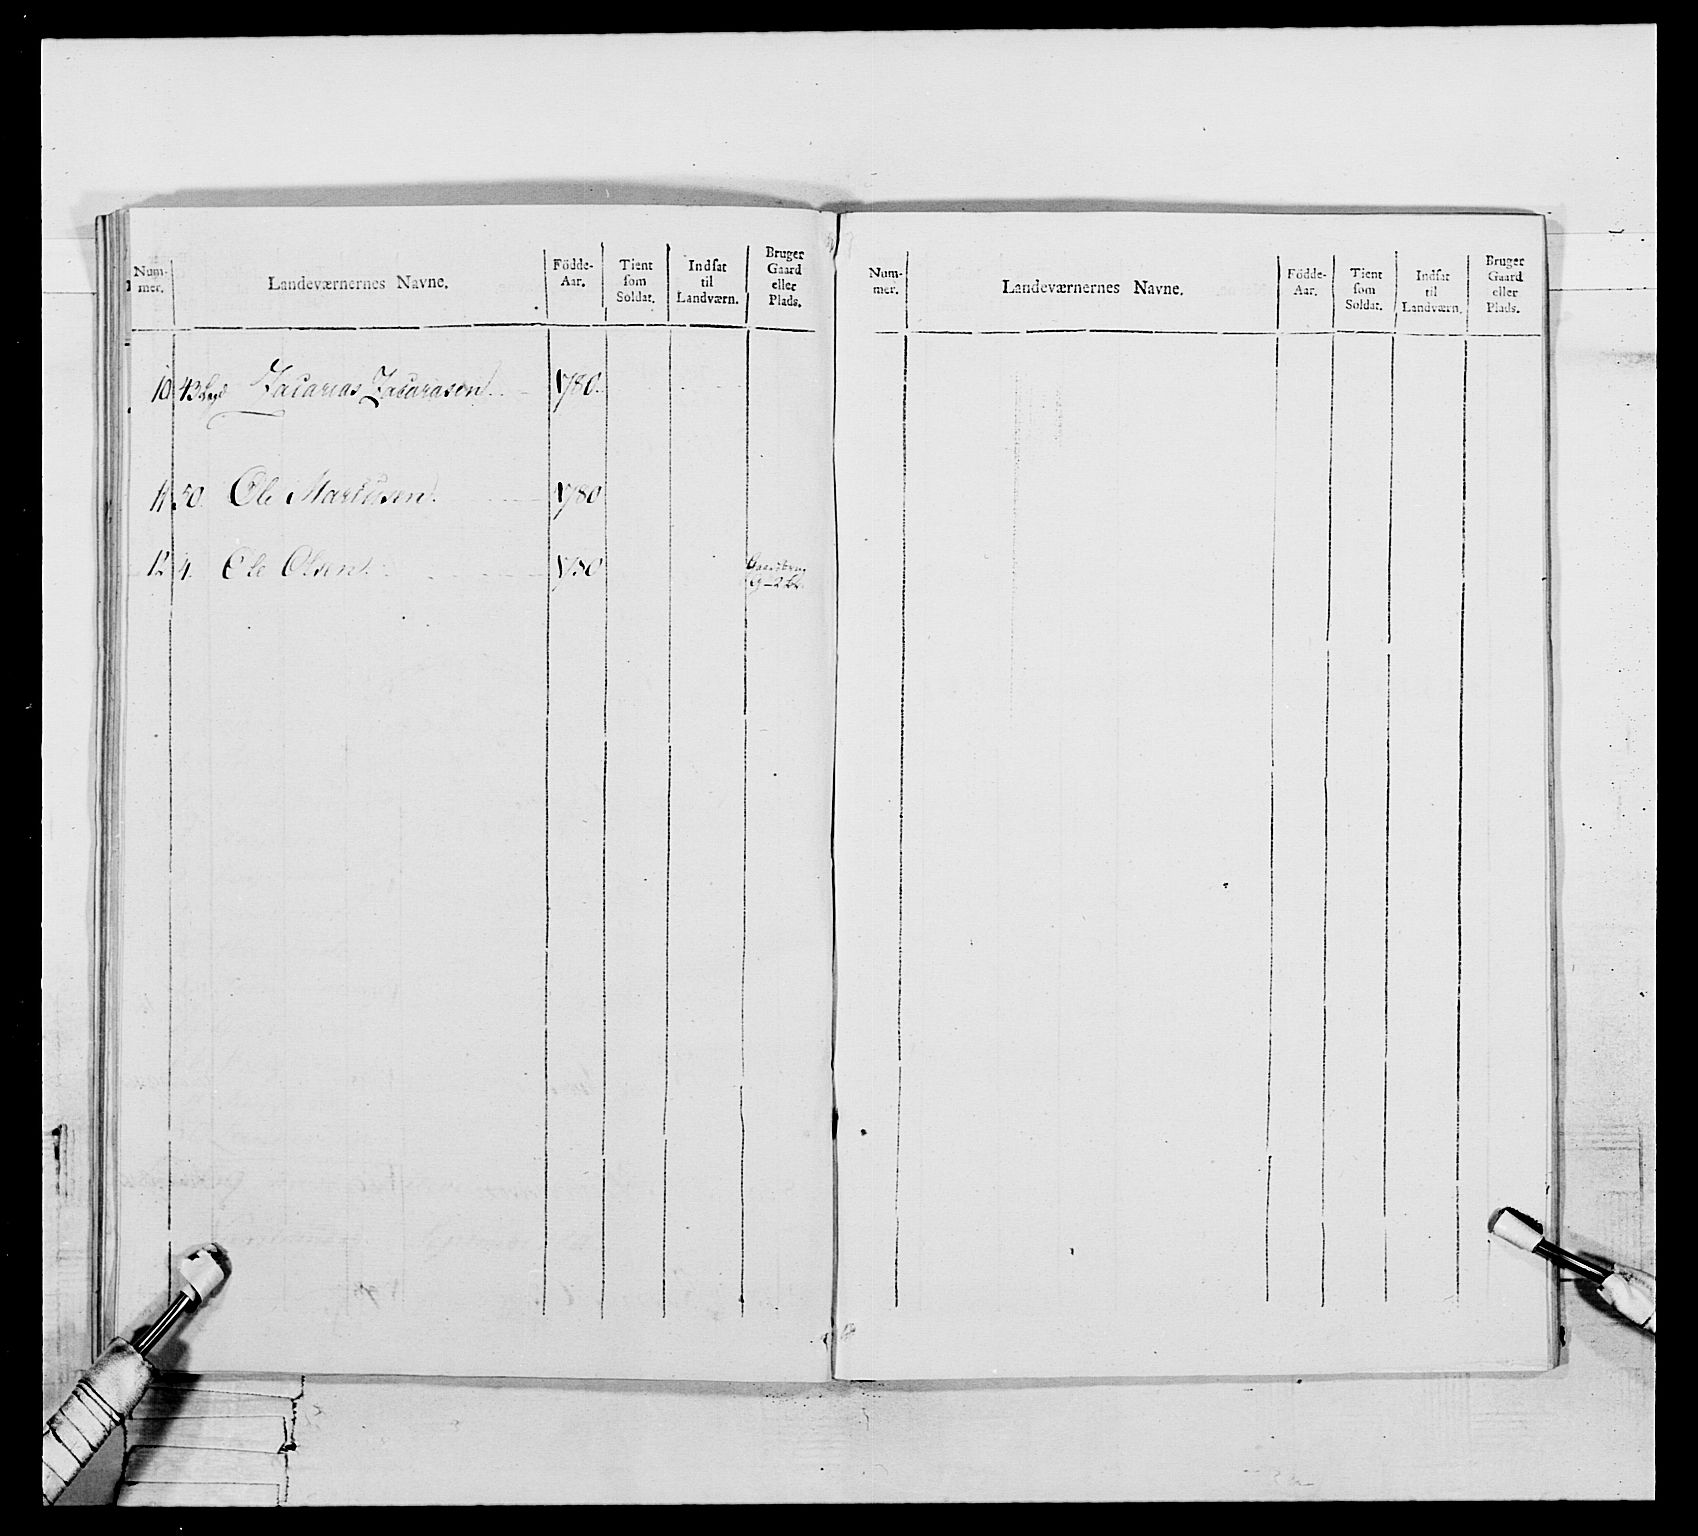 Num-
mer.
Landeværnernes Navne.
Födde-
Aar.
Tient
som
Soldat.
Indsat
til
Landværn.
Bruger
Gaard
eller
Plads.
10 43 Lægd Zacarias Zacarasen 1780.
11 50. Ole Martisen. 1780
12 4. Ole Olsen. 1780
Num-
mer.
Landeværnernes Navne.
Födde-
Aar.
Tient
som
Soldat.
Indsat
til
Landværn.
Bruger
Gaard
eller
Plads.